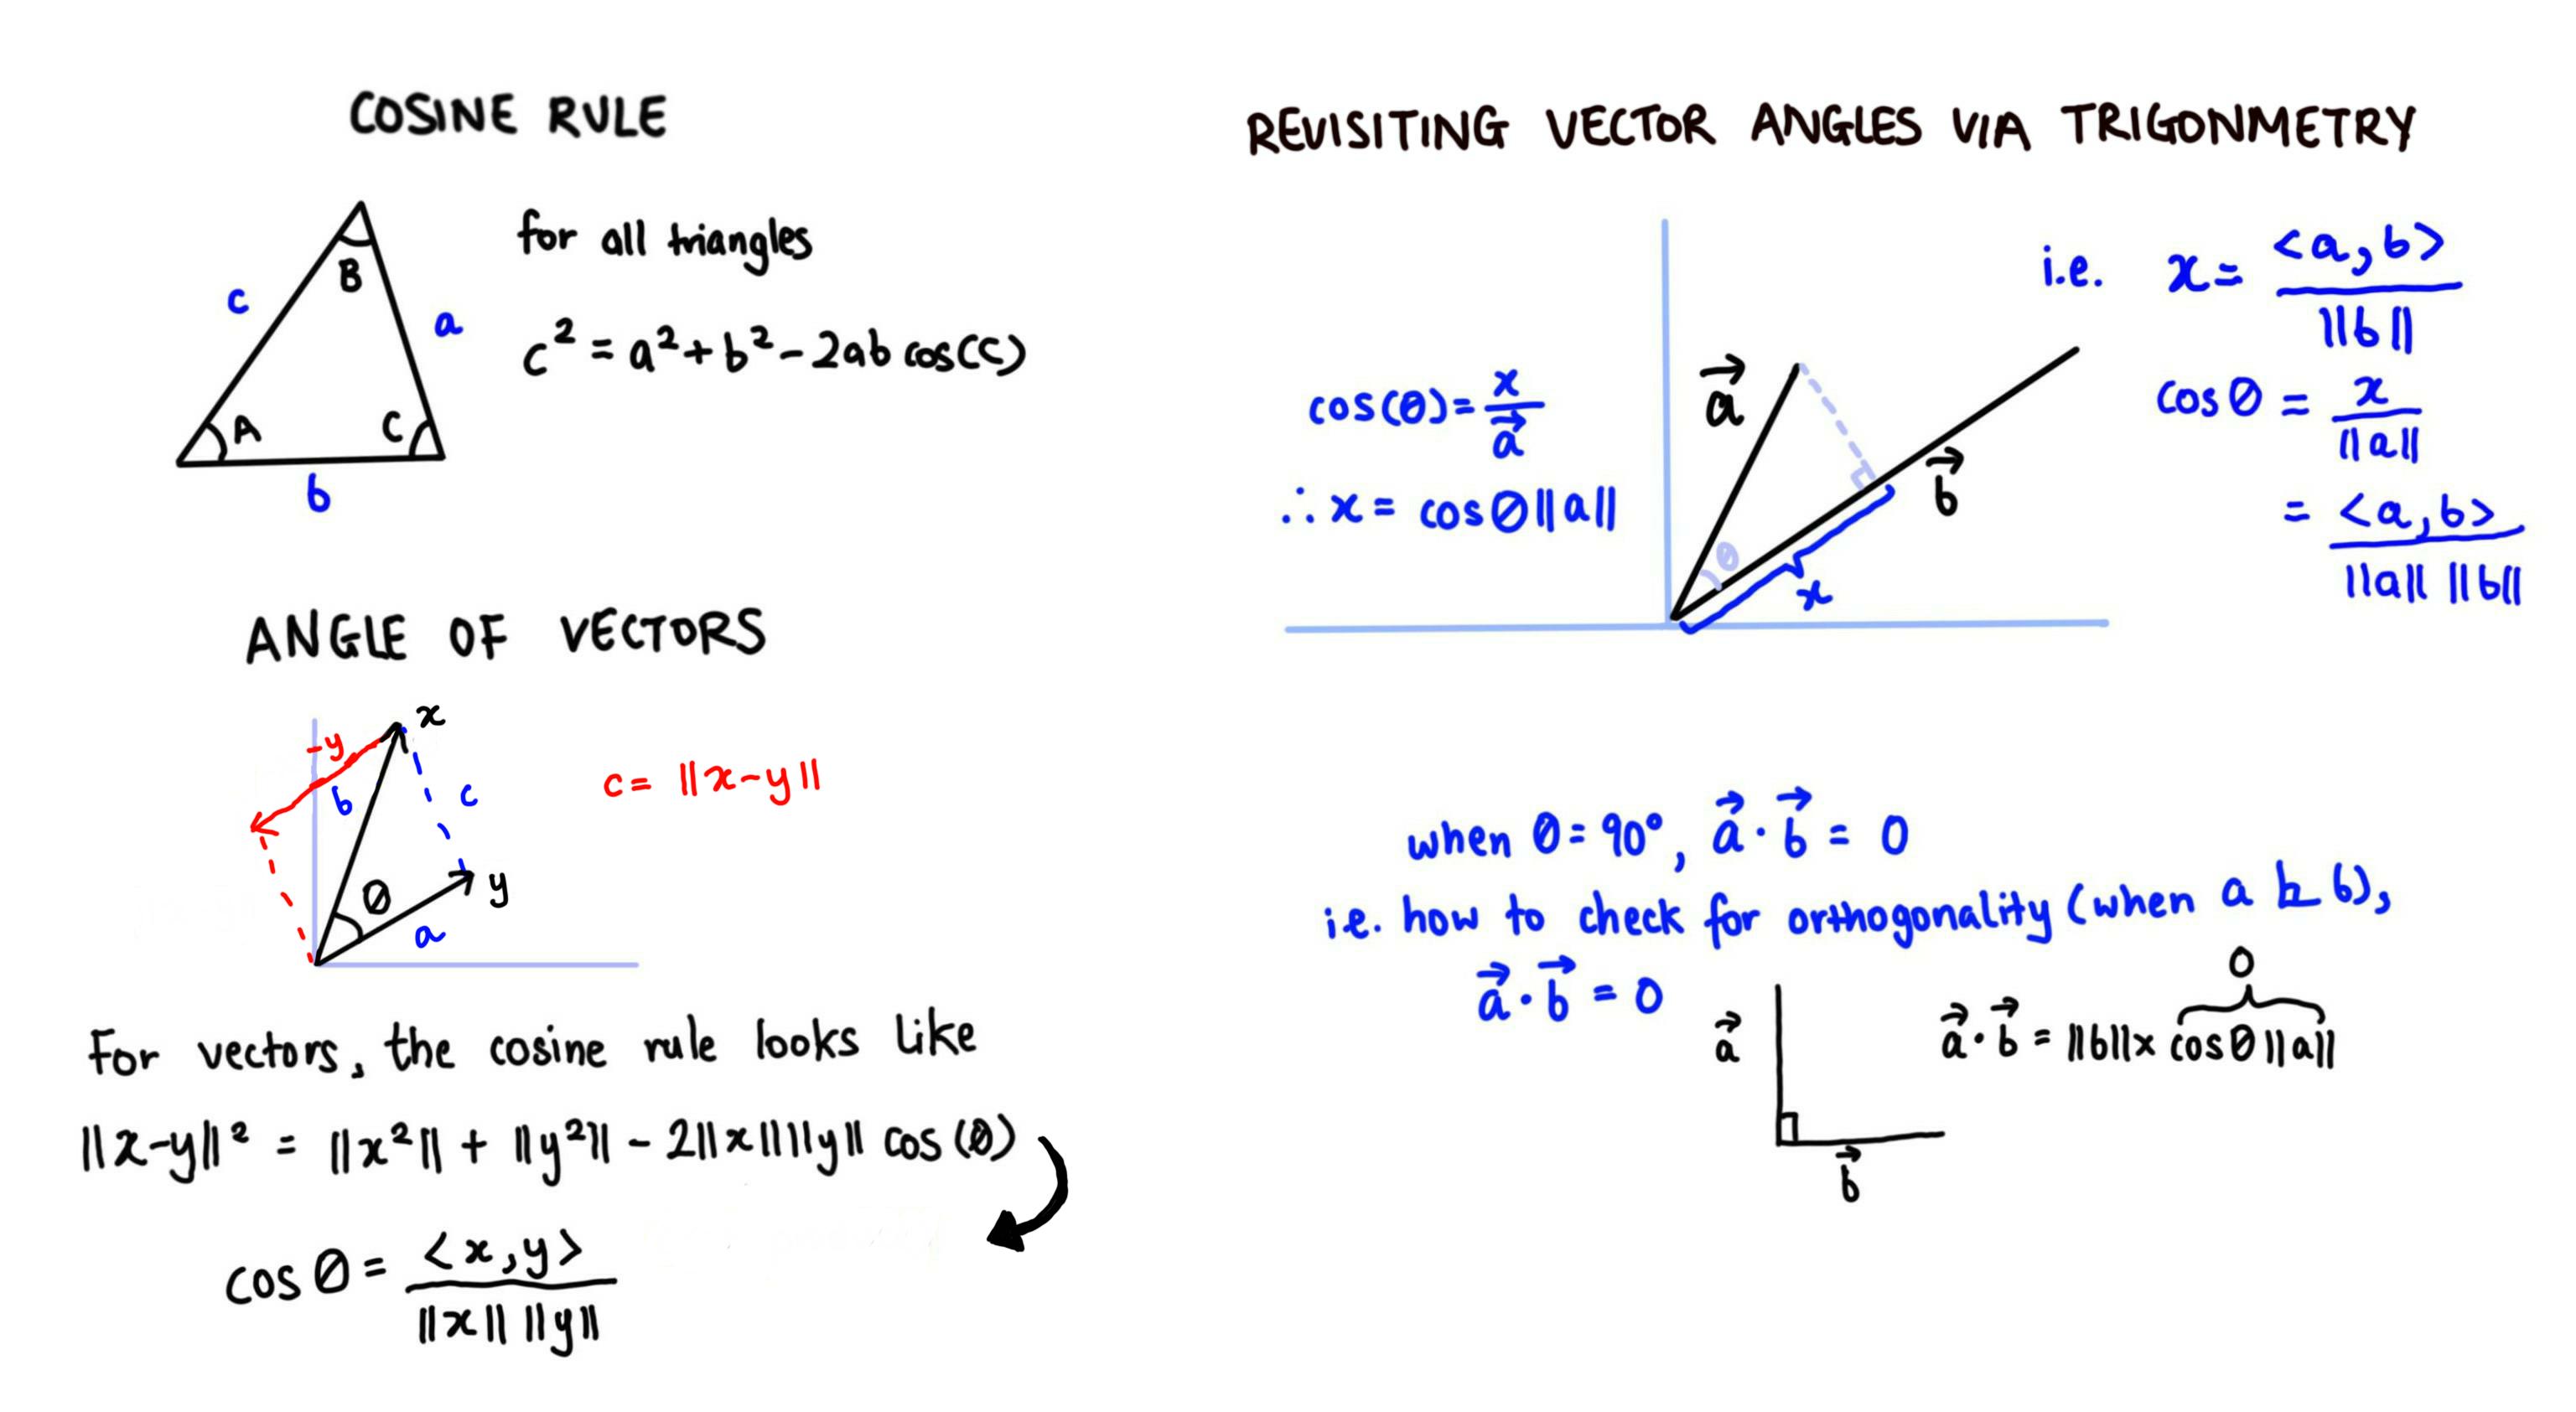 COSINE RULE
B
c
a
A
C
b
for all triangles
c² = a² + b² - 2ab cos(C)
ANGLE OF VECTORS
x
-y
b
c
θ
y
a
c = ||x-y||
For vectors, the cosine rule looks like
||x-y||² = ||x²|| + ||y²|| - 2||x||||y|| cos(θ)
cos θ = <x,y>
||x|| ||y||
REVISITING VECTOR ANGLES VIA TRIGONMETRY
cos(θ) = x
a⃗
∴ x = cos θ ||a||
a⃗
θ
b⃗
x
i.e. x = <a,b>
||b||
cos θ = x
||a||
= <a,b>
||a|| ||b||
when θ = 90°, a⃗ · b⃗ = 0
i.e. how to check for orthogonality (when a ⊾ b),
a⃗ · b⃗ = 0
a⃗
b⃗
0
a⃗ · b⃗ = ||b|| x cos θ ||a||